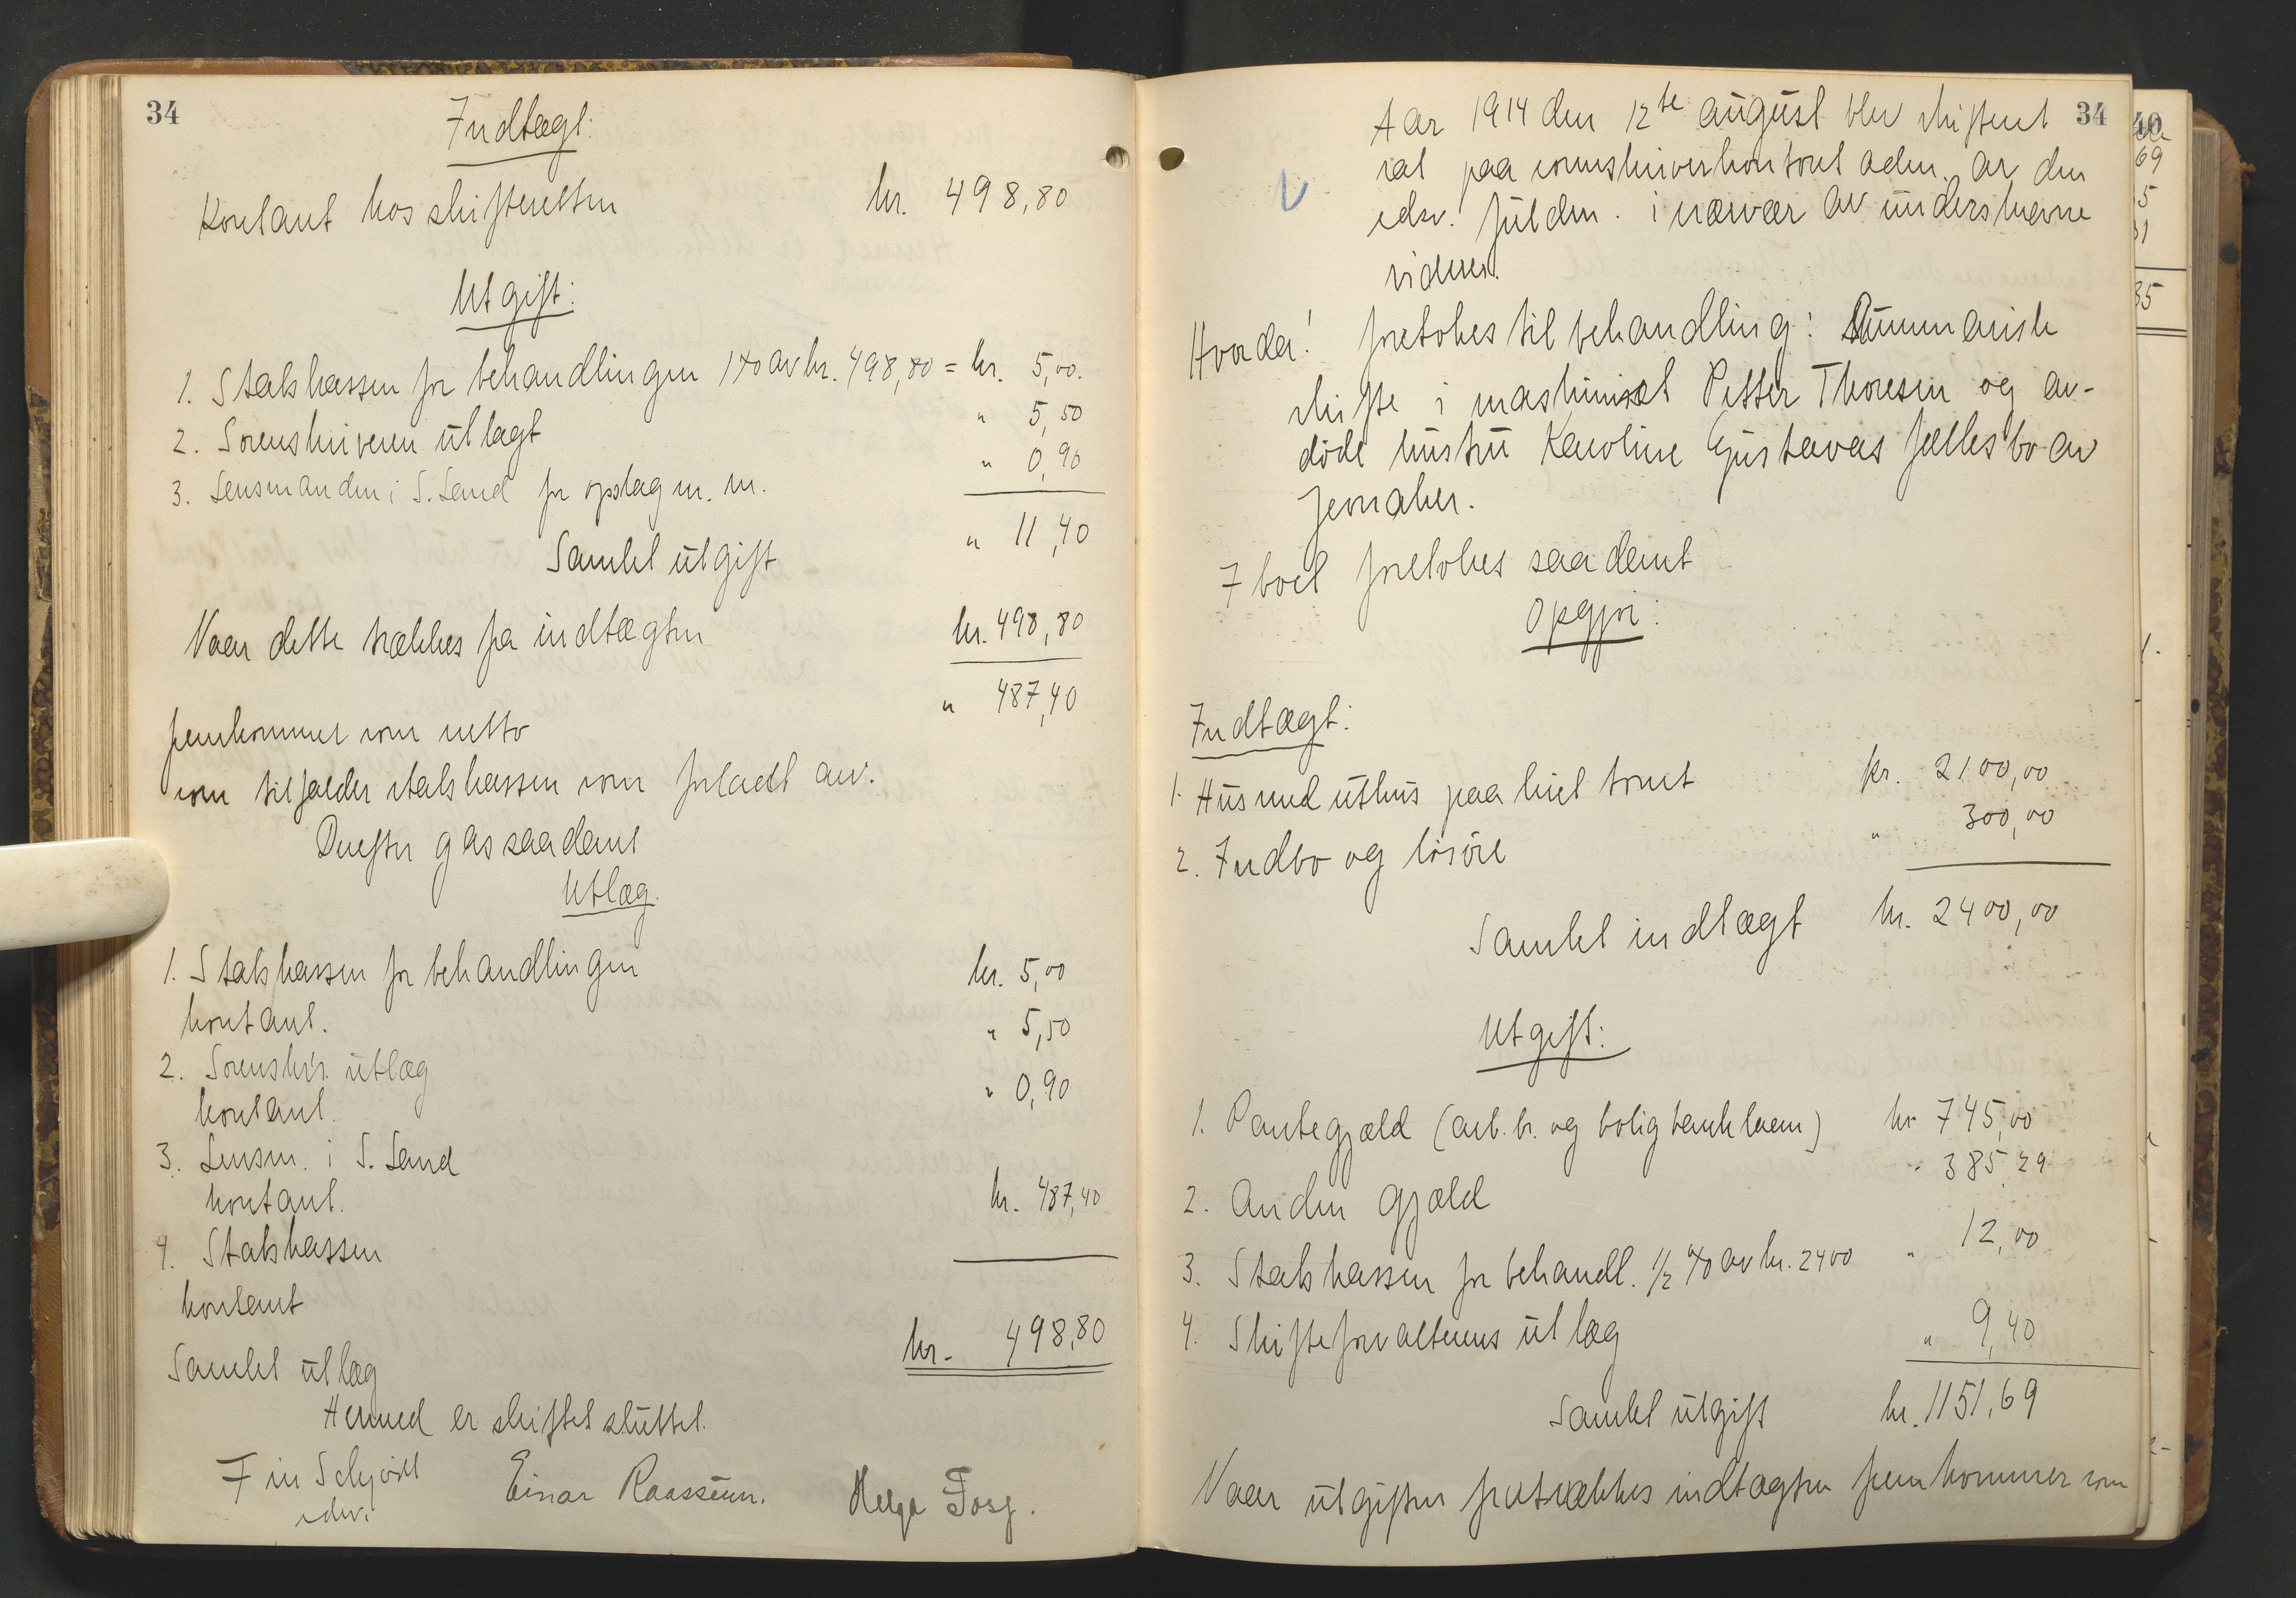 34
Indtægt:
Kontant hos skifteretten kr. 498,80
Utgift:
1. Statskassen for behandlingen 1 % av kr. 498,80 = kr. 5,00.
2. Sorenskriveren utlagt " 5,50
3. Lensmanden i S. Land for opslag m. m. " 0,90
Samlet utgift " 11,40
Naar dette trækkes fra indtægten kr. 498,80
fremkommer som netto " 487,40
som tilfalder statskassen som forladt arv.
Derefter gas saadant
Utlæg.
1. Statskassen for behandlingen kr. 5,00
kontant.
2. Sorenskr's. utlæg " 5,50
kontant.
3. Lensm. i S. Land " 0,90
kontant.
4. Statskassen kr. 487,40
kontant
Samlet utlæg kr. 498,80
Hermed er skiftet sluttet.
Fin Schjødt Einar Raassum. Helga Fosj.
edsv.
34
Aar 1914 den 12te august blev skifteret
sat paa sorenskriverkontoret adm. av den
edsv. fuldm. i nærvær av underskrevne
vidner.
Hvorda! foretokes til behandling: Summarisk
skifte i maskinist Petter Thoresen og av-
døde hustru Karoline Gustavas fællesbo av
Jevnaker.
I boet foretokes saadant
Opgjør:
Indtægt:
1. Hus med uthus paa leiet tomt kr. 2100,00
2. Indbo og løsøre " 300,00
Samlet indtægt kr. 2400,00
Utgift:
1. Pantegjæld (arb. br. og boligbank laan) kr. 745,00
2. Anden gjæld " 385,29
3. Statskassen for behandl. 1/2 % av kr. 2400 " 12,00
4. Skifteforvalterens utlæg " 9,40
Samlet utgift kr. 1151,69
Naar utgiften fratrækkes indtægten fremkommer som
40
69
5
31
35